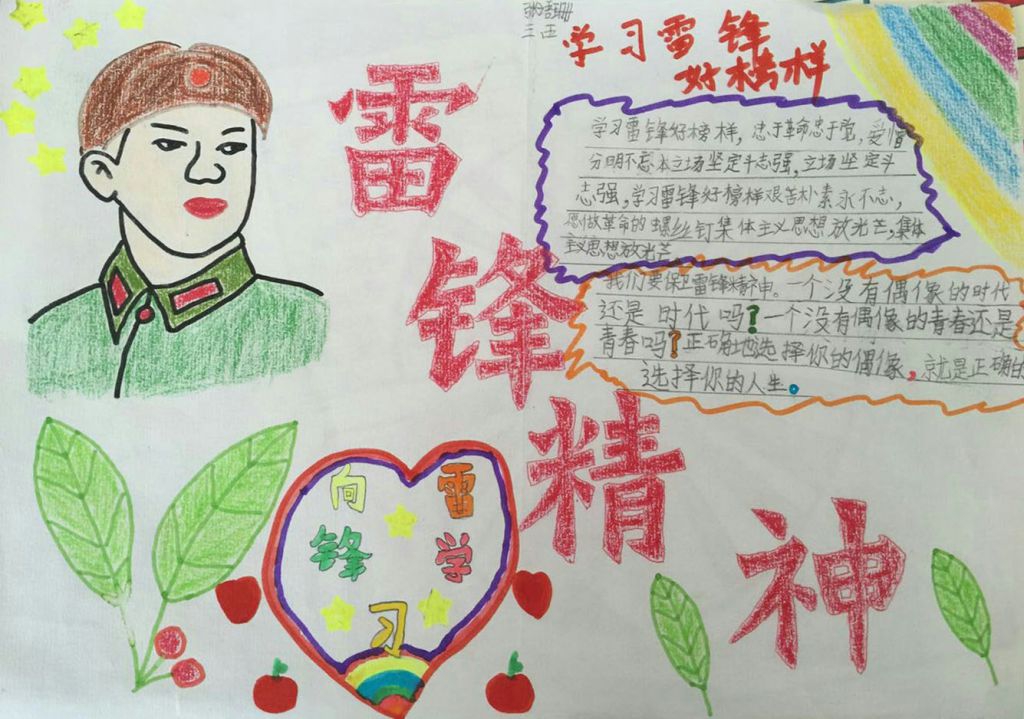 三五
学习雷锋
好榜样
学习雷锋好榜样，忠于革命忠于党，爱憎
分明不忘本立场坚定斗志强，立场坚定斗
志强，学习雷锋好榜样艰苦朴素永不志，
愿做革命的螺丝钉集体主义思想放光芒，集体
主义思想放光芒
我们要保卫雷锋精神。一个没有偶像的时代
还是时代吗？一个没有偶像的青春还是
青春吗？正确地选择你的偶像，就是正确的
选择你的人生。
雷
锋
精
神
向雷
锋学
习